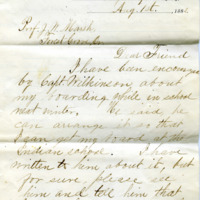 Aug. 1st, 188
Prof. J. W. Marsh,
Forest Grove, Or.
Dear Friend
I have been encouraged
by Capt. Wilkinson about
my boarding while in school
next winter. He said he
can arrange it so that
I can get my board at the
Indian school. I have
written to him about it, but
for sure, please see
him and tell him that